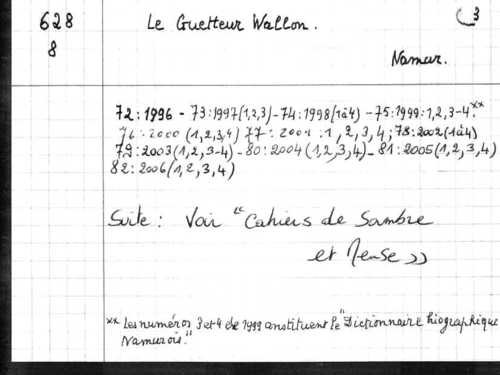 628 Le Guetteur Wallon. 3
8
Namur.
72:1996 - 73:1997(1,2,3) - 74:1998(1à4) - 75:1999:1,2,3-4.**
76:2000(1,2,3,4) 77:2001:1,2,3,4; 78:2002(1à4)
79:2003(1,2,3-4) - 80:2004(1,2,3,4) - 81:2005(1,2,3,4)
82:2006(1,2,3,4)
Suite: Voir "Cahiers de Sambre
et Meuse »
** Les numéros 3 et 4 de 1999 constituent le "Dictionnaire biographique
Namurois."